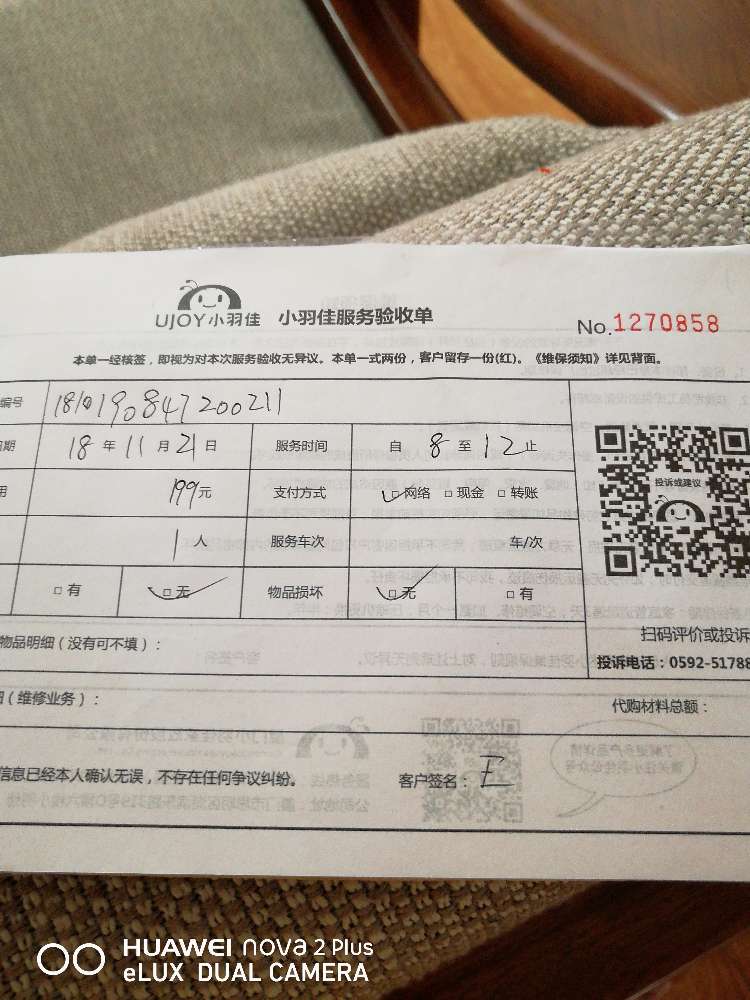 UJOY小羽佳 小羽佳服务验收单 No.1270858
本单一经核签，即视为对本次服务验收无异议。本单一式两份，客户留存一份(红)。《维保须知》详见背面。
编号
期 18年11月21日 服务时间 自8至12止
用 199元 支付方式 □网络 □现金 □转账
1人 服务车次 车/次
□有 □无 物品损坏 □无 □有
投诉或建议
扫码评价或投诉
投诉电话：0592-51788
物品明细（没有可不填）：
（维修业务）： 代购材料总额：
信息已经本人确认无误，不存在任何争议纠纷。 客户签名：E
HUAWEI nova 2 Plus
eLUX DUAL CAMERA